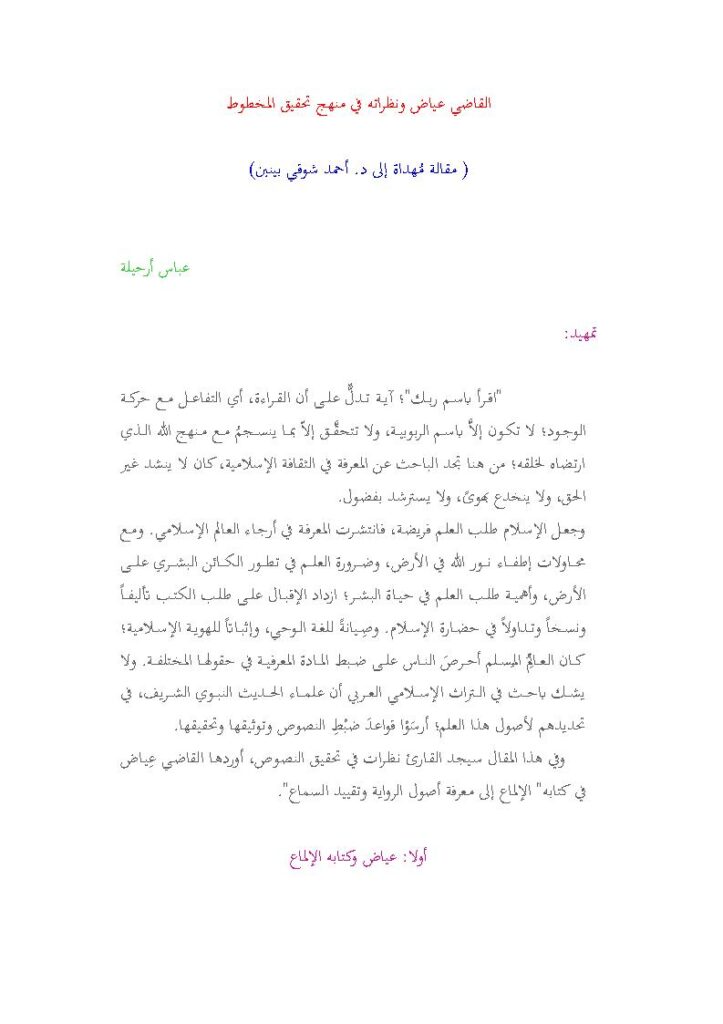 القاضي عياض ونظراته في منهج تحقيق المخطوط
( مقالة مُهداة إلى د. أحمد شوقي بينبين)
عباس أرحيلة
تمهيد:
"اقرأ باسم ربك"؛ آية تدلُّ على أن القراءة، أي التفاعل مع حركة
الوجود؛ لا تكون إلاَّ باسم الربوبية، ولا تتحقَّق إلاّ بما ينسجمُ مع منهج الله الذي
ارتضاه لخلقه؛ من هنا تجد الباحث عن المعرفة في الثقافة الإسلامية، كان لا ينشد غير
الحق، ولا ينخدع بهوىً، ولا يسترشد بفضول.
وجعل الإسلام طلب العلم فريضة، فانتشرت المعرفة في أرجاء العالم الإسلامي. ومع
محاولات إطفاء نور الله في الأرض، وضرورةِ العلم في تطور الكائن البشري على
الأرض، وأهمية طلب العلم في حياة البشر؛ ازداد الإقبال على طلب الكتب تأليفاً
ونسخاً وتداولاً في حضارة الإسلام. وصِيانةً للغة الوحي، وإثباتاً للهوية الإسلامية؛
كان العالِمُ المسلم أحرصَ الناس على ضبط المادة المعرفية في حقولها المختلفة. ولا
يشك باحث في التراث الإسلامي العربي أن علماء الحديث النبوي الشريف، في
تحديدهم لأصول هذا العلم؛ أرسَوْا قواعدَ ضبْطِ النصوص وتوثيقها وتحقيقها.
وفي هذا المقال سيجد القارئ نظرات في تحقيق النصوص، أوردها القاضي عِياض
في كتابه" الإلماع إلى معرفة أصول الرواية وتقييد السماع".
أولا: عياض وكتابه الإلماع